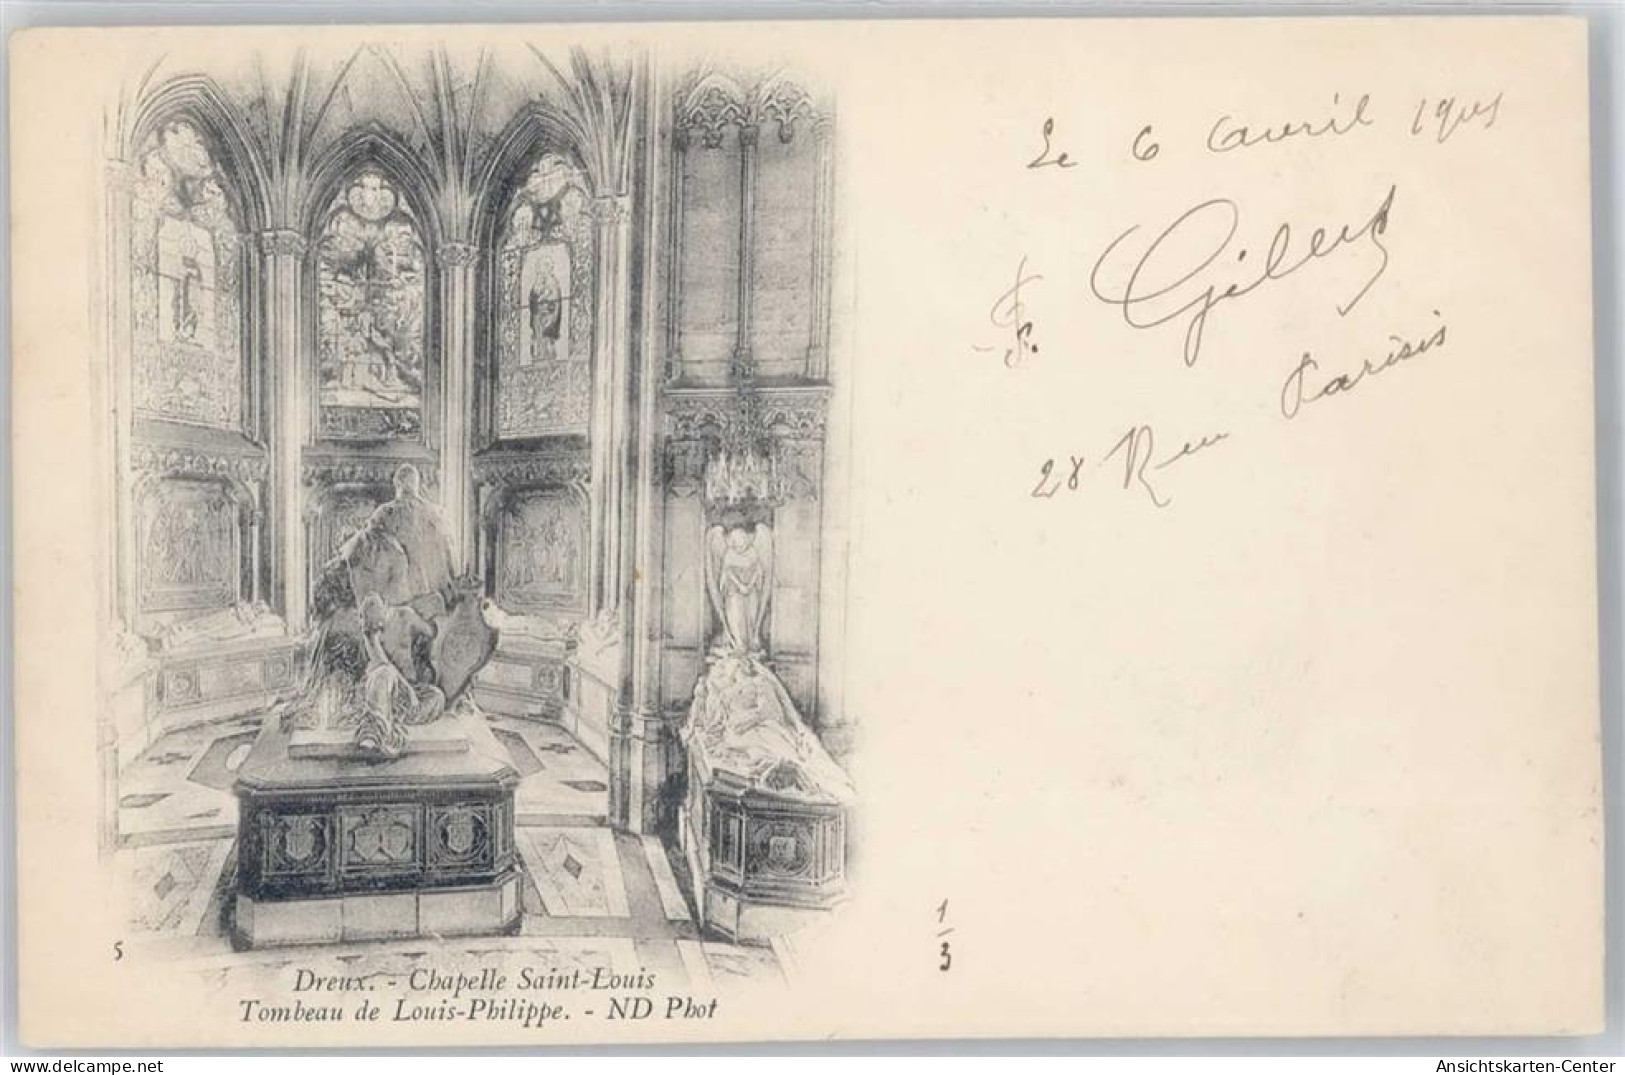 Le 6 avril 1901
Gilles
28 Rue Parisis
1
3
5
Dreux. - Chapelle Saint-Louis
Tombeau de Louis-Philippe. - ND Phot
Ansichtskarten-Center